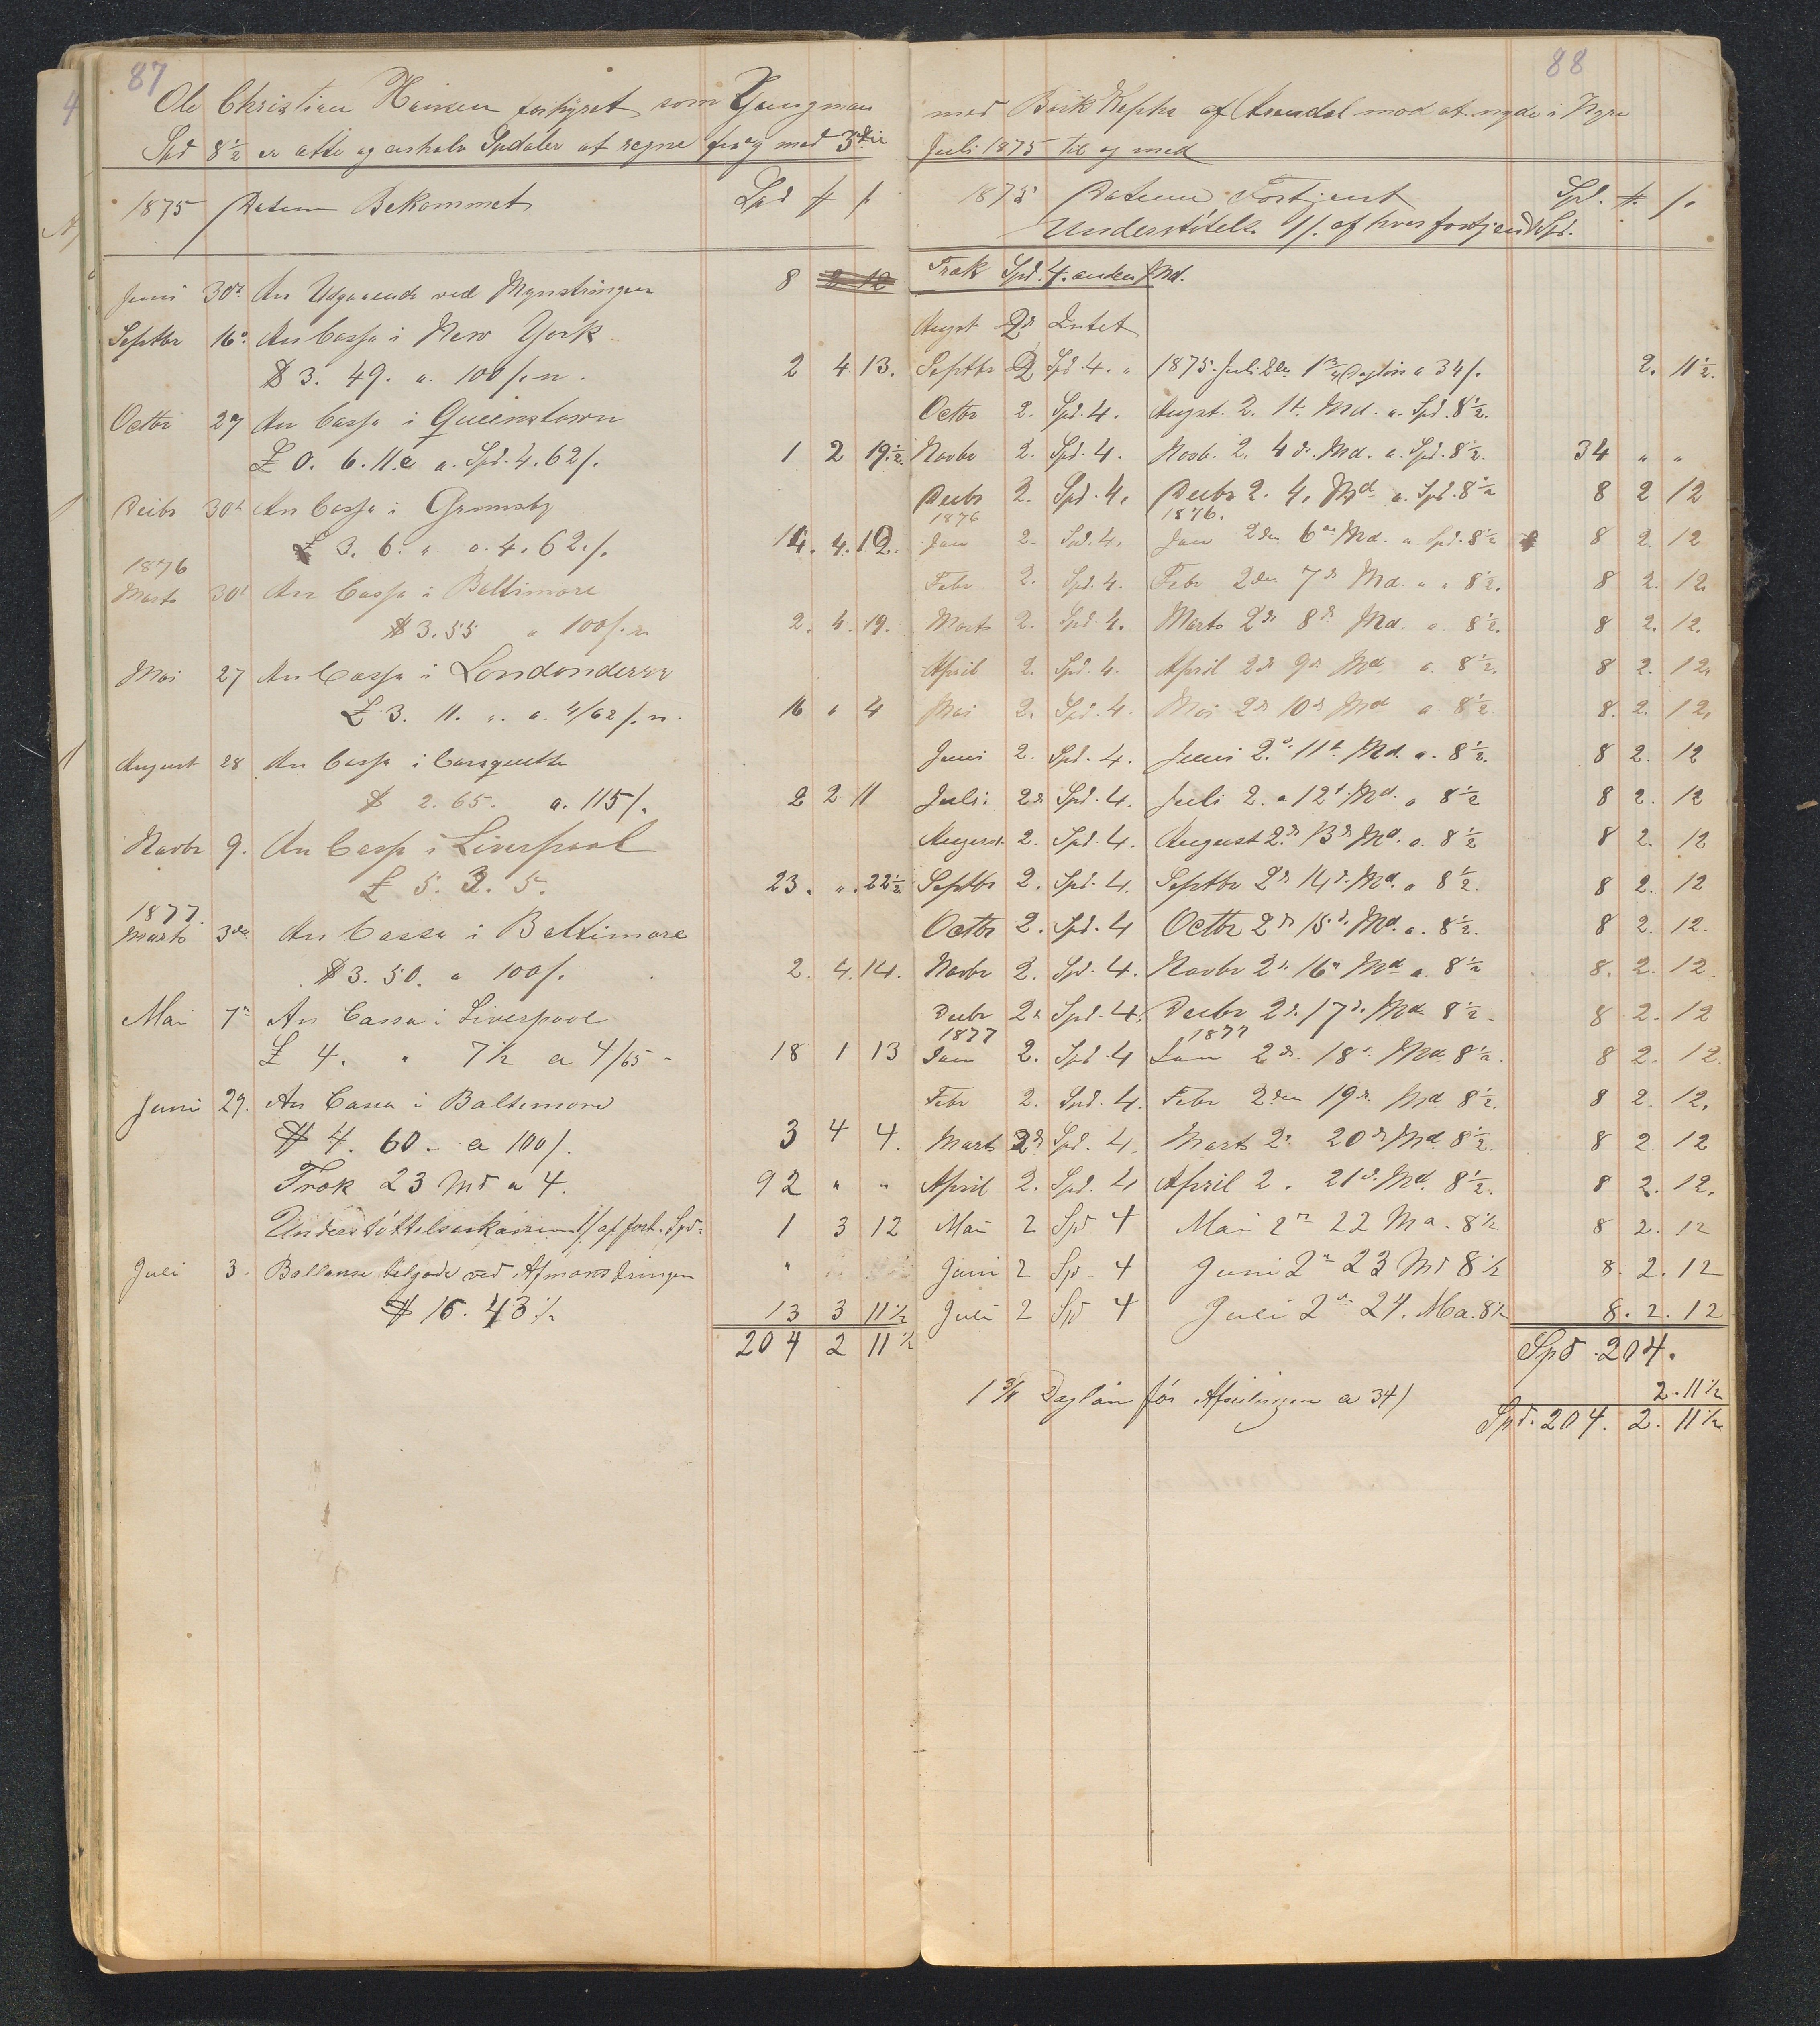 87
Ole Christian Hansen forhyret som Youngman
Spd 8½ er otte og en halv Spdaler at regne fra og med 3die
1875 Datum Bekommet Spd
Juni 30te An Udgaaende ved Mynstringen 8
Septbr 16de An Cassa i New York
$ 3. 49. a. 100 2 4 13.
Octbr 27 An Cassa i Queenstown
£ 0. 6. 11. a. Spd. 4. 62 1 2 19½
Decbr 30te An Cassa i Grimsby
£ 3. 6. " a. 4. 62. 14. 4. 12.
1876
Marts 30te An Cassa i Baltimore
$ 3. 55 a 100 2. 4. 19.
Mai 27 An Cassa i Londonderry
£ 3. 11. " a. 4/62 16 " 4
August 28 An Cassa i
$ 2. 65. a. 115 2 2 11
Novbr 9. An Cassa i Liverpool
£ 5. 3. 5. 23. ". 22½
1877.
Marts 3die An Cassa i Baltimore
$ 3. 50. a 100 2. 4. 14.
Mai 7de An Cassa i Liverpool
£ 4. " 7½ a 4/65 - 18 1 13
Juni 29. An Cassa i Baltimore
$ 4. 60 - a 100 3 4 4.
Træk 23 Md a 4. 92 " "
Understøttelseskassen af fort. Spd. 1 3 12
Juli 3. Ballanse tilgode ved Afmønstringen "
$ 16. 43½ 13 3 11½
204 2 11½
88
med Bark Kepha af Arendal mod at nyde i Hyre
Juli 1875 til og med
1875 Datum Fortjent Spd.
Understøttelse 1 af hver fortjent Spd.
Træk Spd. 4. anden Md.
August 2de Intet
Septbr 2 Spd. 4. " 1875. Juli 2den 1¾ Dagløn a 34 2. 11½.
Octbr 2. Spd. 4. August. 2. 1te Md. a. Spd. 8½.
Novbr 2. Spd. 4. Novb. 2. 4de Md. a. Spd. 8½. 34 " "
Decbr 2. Spd. 4. Decbr 2. Md a. Spd. 8½ 8 2 12
1876 1876.
Jan 2. Spd. 4. Jan 2den 6te Md. a. Spd. 8½ 8 2. 12
Febr 2. Spd. 4. Febr 2den 7de Md " a 8½. 8 2. 12.
Marts 2. Spd. 4. Marts 2de 8de Md. a. 8½. 8 2. 12.
April 2. Spd. 4. April 2de 9de Md a. 8½. 8 2. 12.
Mai 2. Spd. 4. Mai 2de 10de Md a. 8½ 8. 2. 12.
Juni 2. Spd. 4. Juni 2. 11te Md. a. 8½. 8 2. 12
Juli 2de Spd. 4. Juli 2. 12te Md. a 8½ 8 2. 12
August 2. Spd. 4. August 2de 13de Md. a. 8½ 8 2. 12
Septbr 2. Spd. 4. Septbr 2de 14de Md. a 8½. 8 2. 12
Octbr 2. Spd. 4 Octbr 2de 15de Md. a. 8½. 8 2. 12.
Novbr 2. Spd. 4. Novbr 2de 16de Md a. 8½ 8. 2. 12.
Decbr 2de Spd. 4. Decbr 2de 17de Md. 8½ - 8 2. 12
1877 1877
Jan 2. Spd. 4 Jan 2de 18de Md 8½. 8 2. 12.
Febr 2. Spd. 4. Febr 2den 19de Md. 8½. 8 2. 12.
Marts 2de Spd. 4. Marts 2de 20de Md. 8½. 8 2. 12
April 2. Spd. 4 April 2. 21de Md. 8½. 8 2. 12.
Mai 2 Spd 4 Mai 2de 22 Md. 8½ 8 2. 12
Juni 2 Spd - 4 Juni 2de 23 Md 8½ 8. 2. 12
Juli 2 Spd 4 Juli 2de 24. Md. 8½ 8. 2. 12
Spd. 204.
1¾ Dagløn før Afseilingen a 34 2. 11½
Spd. 204. 2. 11½